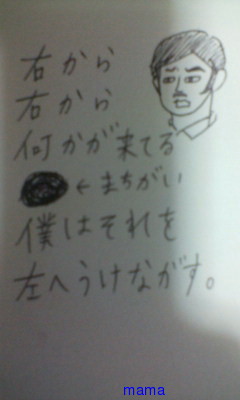 右から
右から
何かが来てる
←まちがい
僕はそれを
左へうけながす。
mama